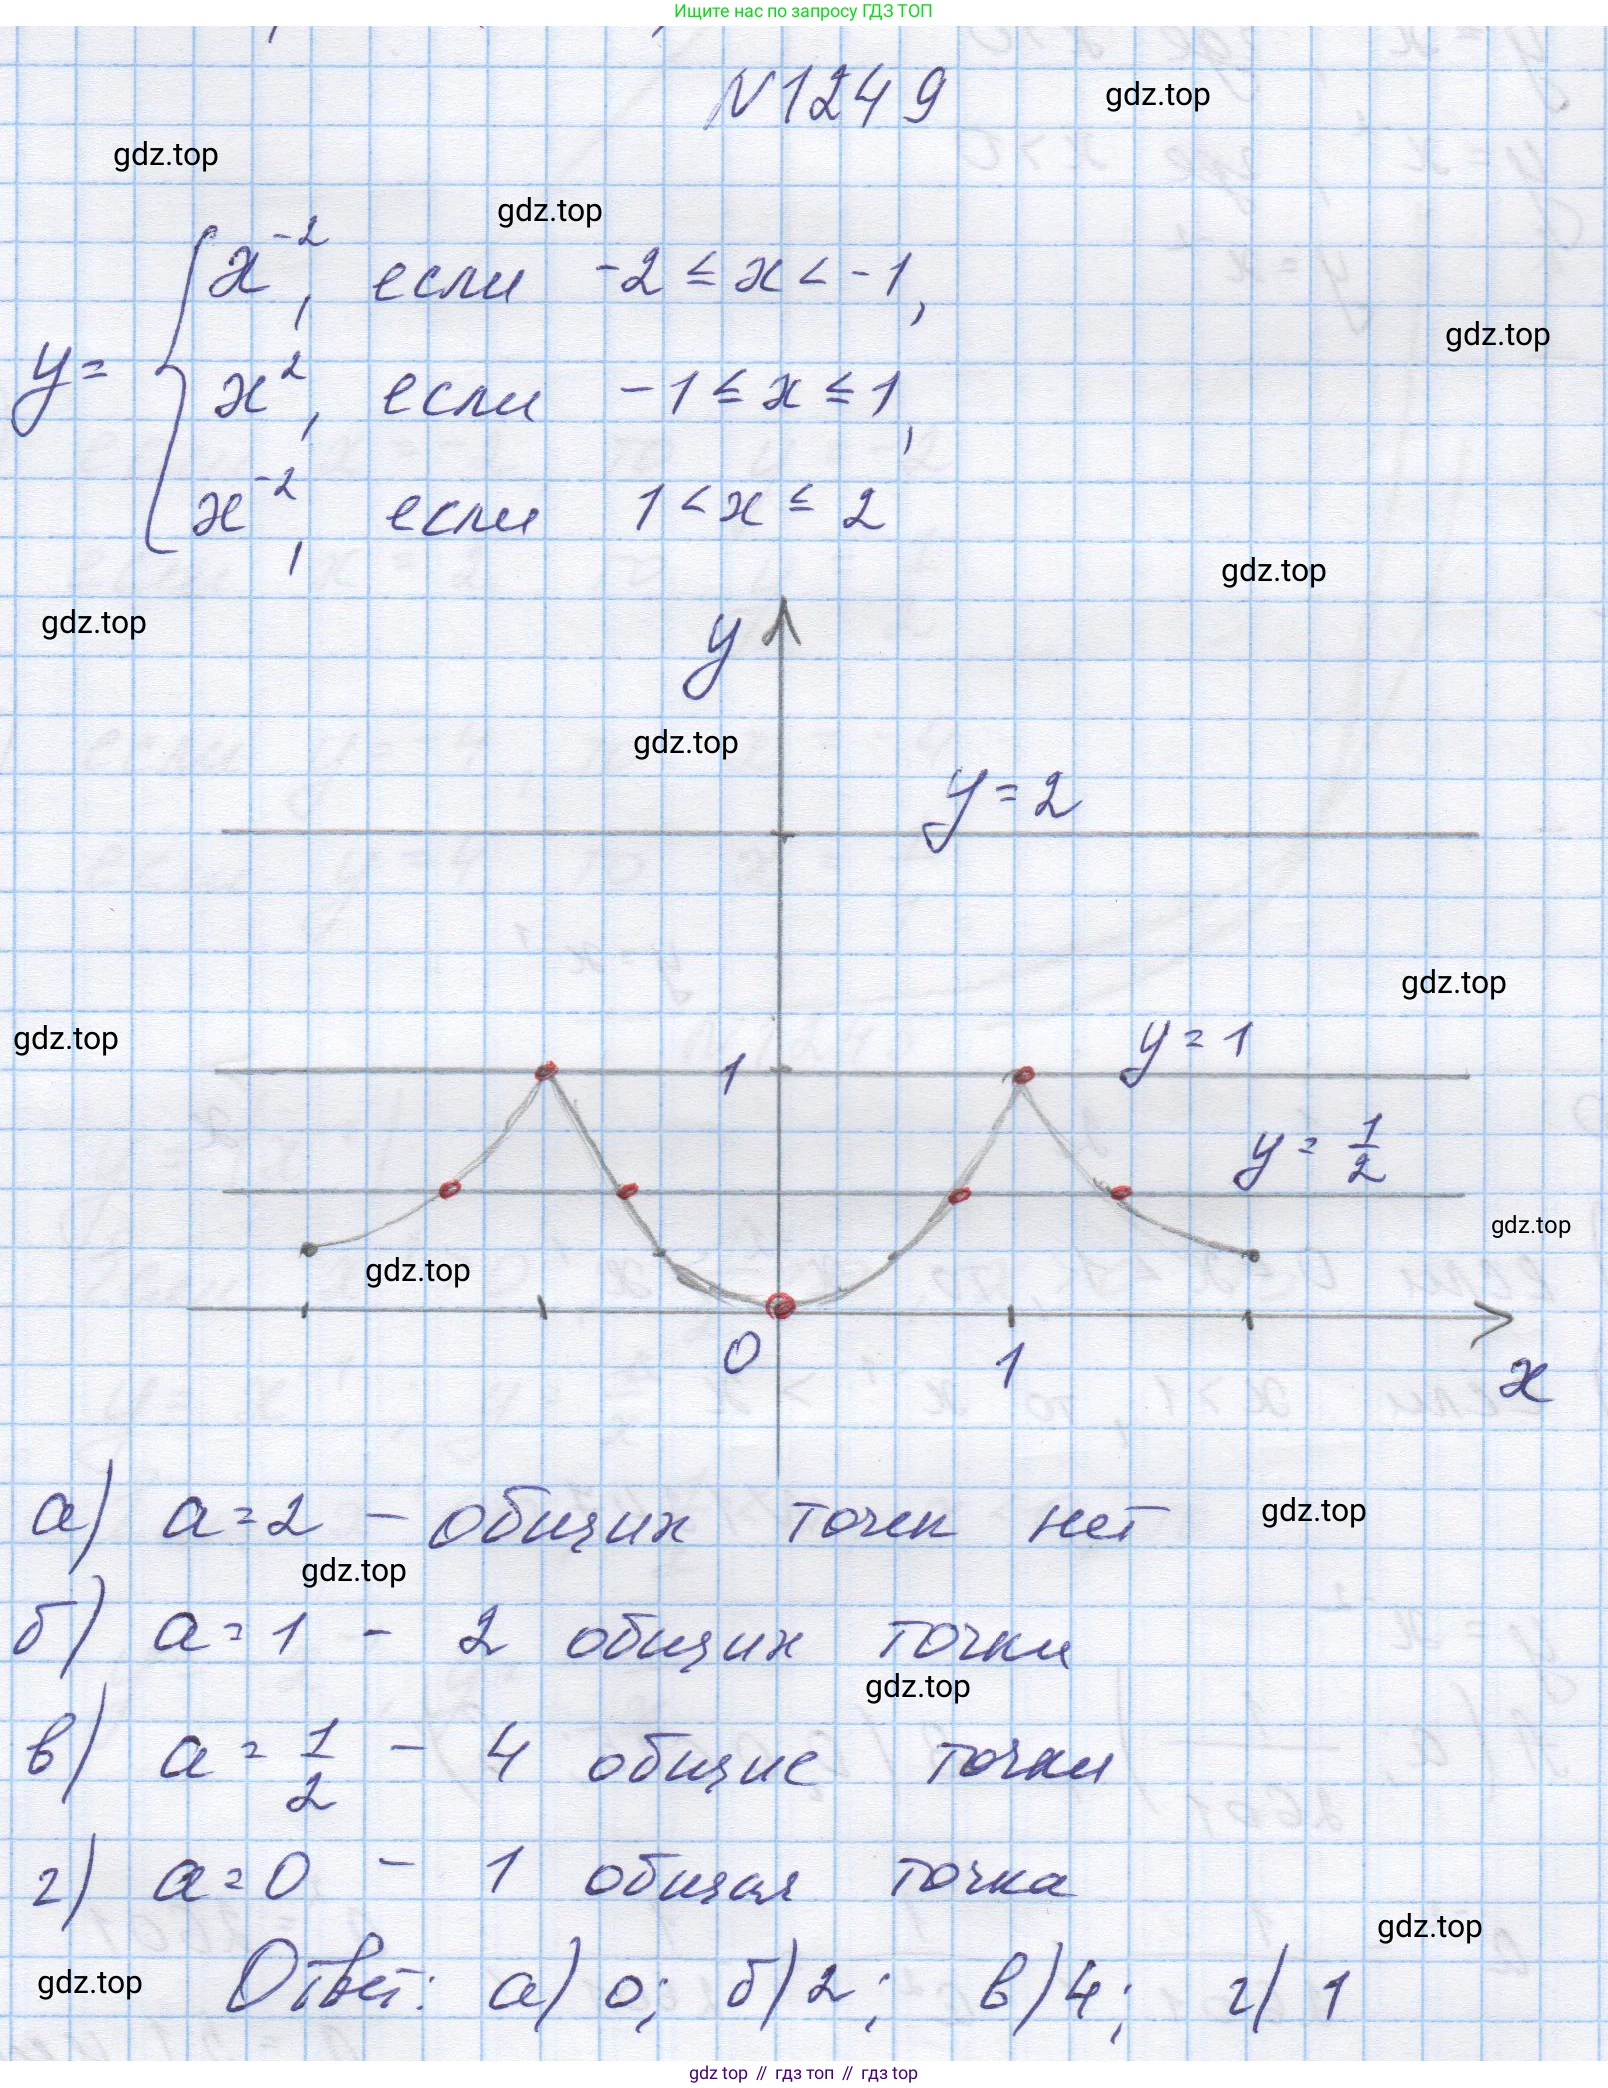 Ищите нас по запросу ГДЗ ТОП
N1249
gdz.top
gdz.top
gdz.top
x⁻², если -2 ≤ x < -1,
gdz.top
y = { x², если -1 ≤ x ≤ 1,
x⁻², если 1 < x ≤ 2
gdz.top
gdz.top
y
gdz.top
y=2
gdz.top
gdz.top
y=1
1
y=1/2
gdz.top
gdz.top
0
1
x
а) a=2 - общих точек нет
gdz.top
gdz.top
б) a=1 - 2 общих точки
gdz.top
в) a=1/2 - 4 общие точки
г) a=0 - 1 общая точка
gdz.top
Ответ: а) 0; б) 2; в) 4; г) 1
gdz.top
gdz top // гдз топ // гдз top